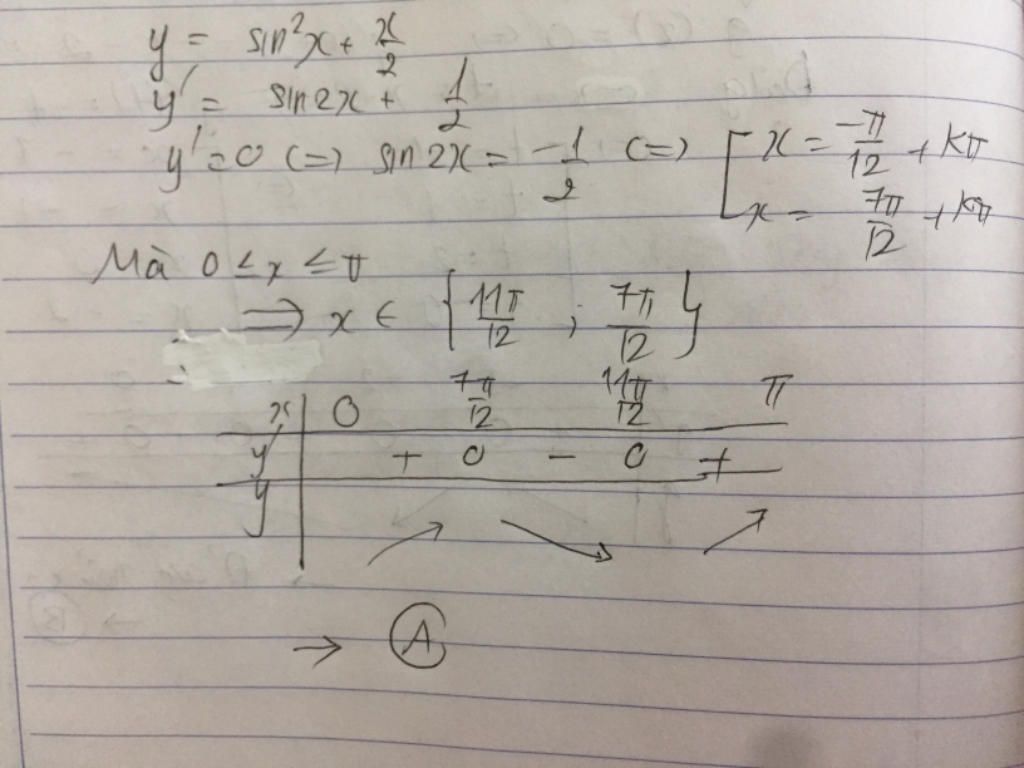 y = sin²x + x/2
y' = sin2x + 1/2
y' = 0 (=) sin2x = -1/2 (=) [ x = -π/12 + kπ
x = 7π/12 + kπ
Mà 0 ≤ x ≤ π
=> x ∈ { 11π/12 ; 7π/12 }
x | 0 7π/12 11π/12 π
y' | + 0 - 0 +
y | ↗ ↘ ↗
→ Ⓐ